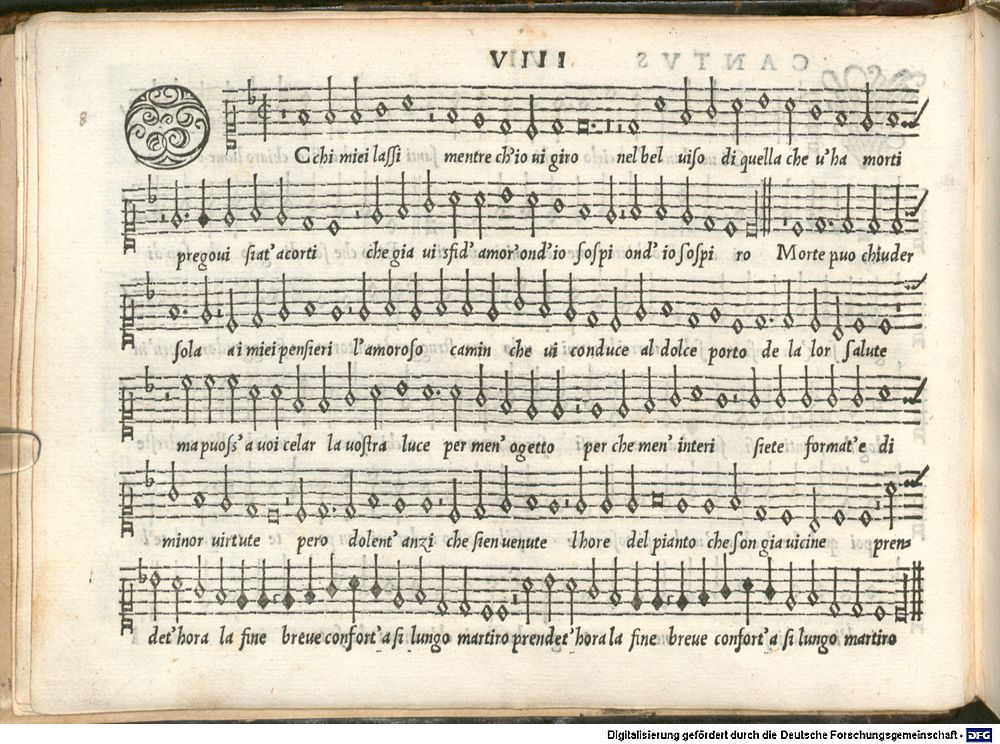 VIIII
8
OCchi miei lassi mentre ch'io ui giro nel bel uiso di quella che u'ha morti
pregoui siat' acorti che gia ui sfid' amor' ond' io sospi ond' io sospi ro Morte puo chiuder
sola ai miei pensieri l'amoroso camin che ui conduce al dolce porto de la lor salute
ma puoss' a uoi celar la uostra luce per men' ogetto per che men' interi siete format' e di
minor uirtute pero dolent' anzi che sien uenute lhore del pianto che son gia uicine pren-
det' hora la fine breue confort' a si lungo martiro prendet' hora la fine breue confort' a si lungo martiro
Digitalisierung gefördert durch die Deutsche Forschungsgemeinschaft - DFG